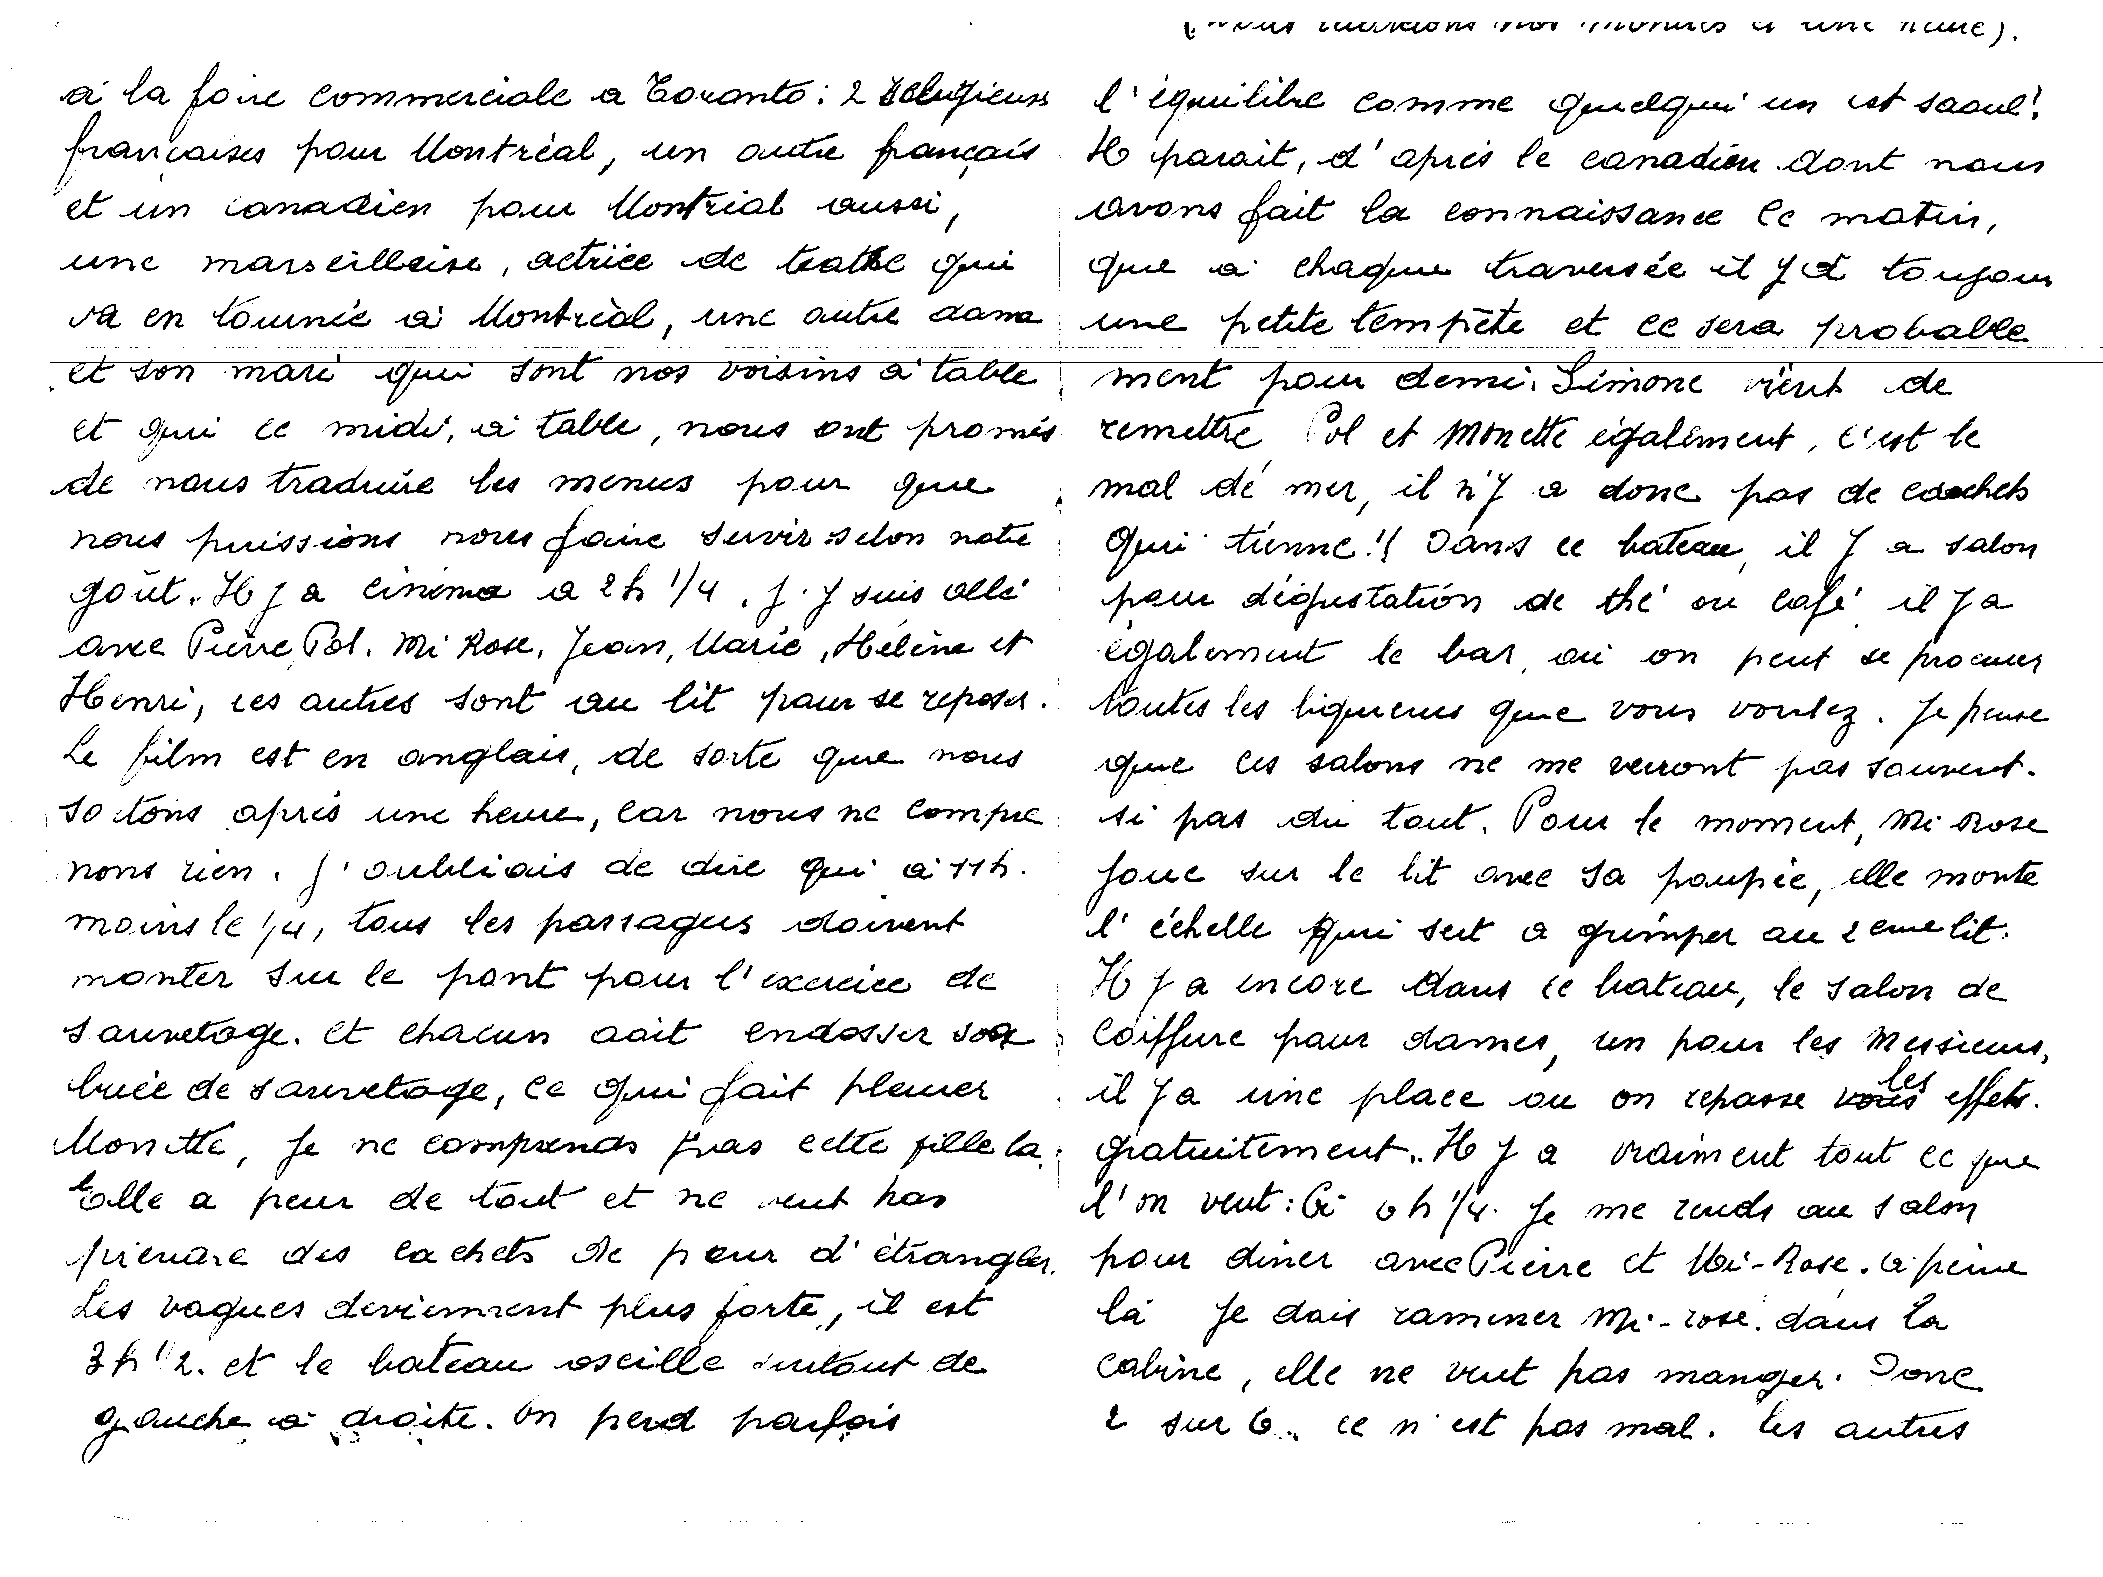 à la foire commerciale a Toronto : 2 Religieuses
françaises pour Montréal, un autre français
et un canadien pour Montréal aussi,
une marseillaise, actrice de teatre qui
va en tournée à Montréal, une autre dame
et son mari qui sont nos voisins à table
et qui ce midi, à table, nous ont promis
de nous traduire les menus pour que
nous puissions nous faire servir selon notre
goût. Il y a cinéma a 2 h 1/4. J'y suis allé
avec Pierre, Pol. Mi Rose, Jean, Marie, Hélène et
Henri, les autres sont au lit pour se reposer.
Le film est en anglais, de sorte que nous
sortons après une heure, car nous ne compre
nons rien. J'oubliais de dire qui à 11 h.
moins le 1/4, tous les passagers doivent
monter sur le pont pour l'exercice de
sauvetage. et chacun doit endosser sa
buée de sauvetage, ce qui fait pleurer
Monette, Je ne comprends pas cette fille la.
Elle a peur de tout et ne veut pas
prendre des cachets de peur d'étrangler.
Les vagues deviennent plus forte, il est
3 h 1/2. et le bateau oscille surtout de
gauche à droite. On perd parfois
(nous reculons nos montres d'une heure).
l'équilibre comme quelqu'un est saoul!
Il parait, d'après le canadien dont nous
avons fait la connaissance ce matin,
que à chaque traversée il y a toujours
une petite tempête et ce sera probable
ment pour demi. Simone vient de
remettre, Pol et Monette également, c'est le
mal de mer, il n'y a donc pas de cachets
qui tienne!! Dans ce bateau, il y a salon
pour dégustation de thé ou café, il y a
également le bar, où on peut se procurer
toutes les liqueurs que vous voulez. Je pense
que ces salons ne me verront pas souvent.
si pas du tout. Pour le moment, Mi Rose
joue sur le lit avec sa poupée, elle monte
l'échelle qui sert a grimper au 2eme lit.
Il y a encore dans ce bateau, le salon de
coiffure pour dames, un pour les Messieurs,
il y a une place ou on repasse vous les effets.
gratuitement. Il y a vraiment tout ce que
l'on veut : A 6 h 1/4. Je me rends au salon
pour diner avec Pierre et Mi-Rose. à peine
là Je dois ramener Mi-rose. dans la
cabine, elle ne veut pas manger. Donc
2 sur 6.. ce n'est pas mal. les autres